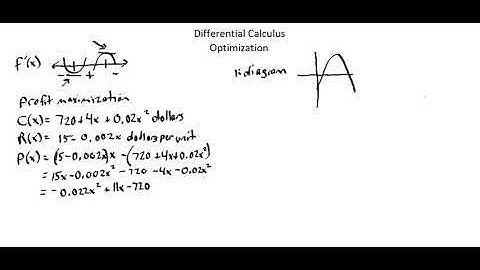 Differential Calculus
Optimization
f'(x)
- + -
1: diagram
Profit maximization
C(x) = 720 + 4x + 0.02x² dollars
R(x) = 15 - 0.002x dollars per unit
P(x) = (15 - 0.002x)x - (720 + 4x + 0.02x²)
= 15x - 0.002x² - 720 - 4x - 0.02x²
= - 0.022x² + 11x - 720